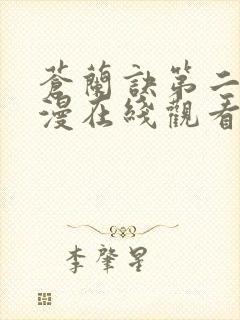 蒼蘭訣第二
漫在綫觀看
李肇星